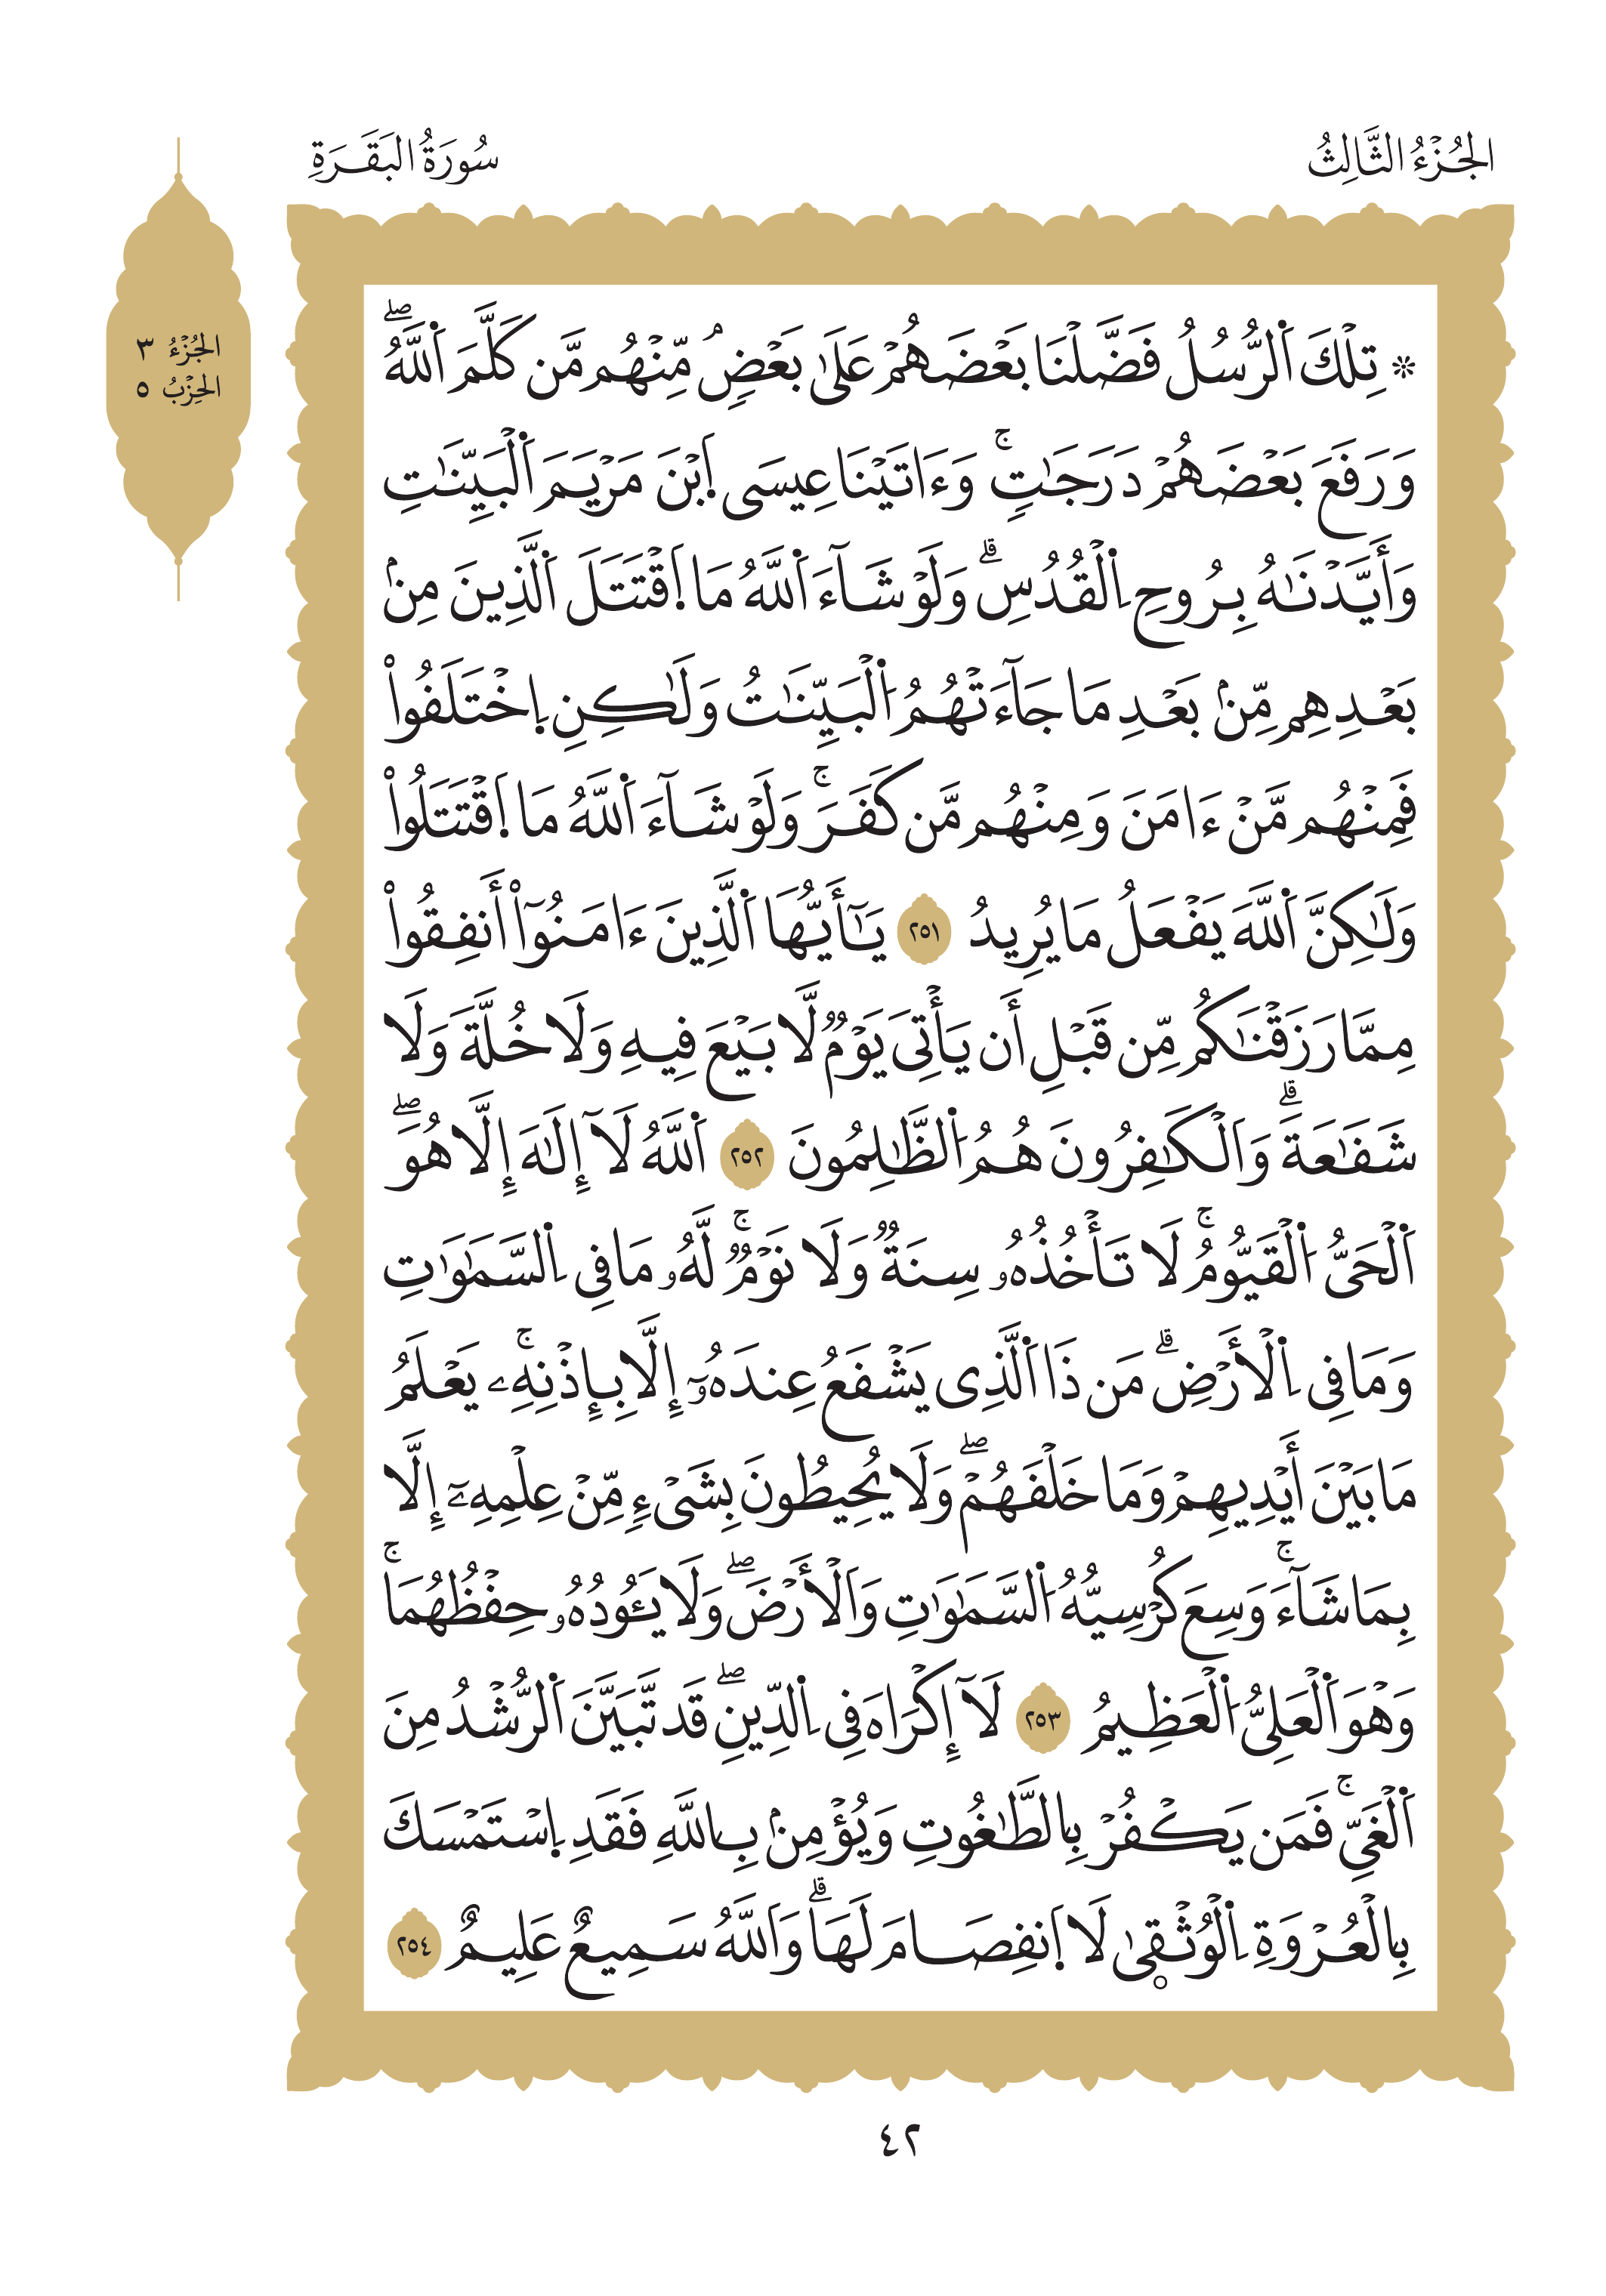 الجُزْءُ الثَّالِثُ
سُورَةُ البَقَـَرَةِ
الجُزْءُ ٣
الحِزْبُ ٥
۞ تِلْكَ اَ۬لرُّسُلُ فَضَّلْنَا بَعْضَهُمْ عَلَىٰ بَعْضٖۘ مِّنْهُم مَّن كَلَّمَ اَ۬للَّهُۖ
وَرَفَعَ بَعْضَهُمْ دَرَجَٰتٖۚ وَءَاتَيْنَا عِيسَى اَ۪بْنَ مَرْيَمَ اَ۬لْبَيِّنَٰتِ
وَأَيَّدْنَٰهُ بِرُوحِ اِ۬لْقُدُسِۗ وَلَوْ شَآءَ اَ۬للَّهُ مَا اَ۪قْتَتَلَ اَ۬لَّذِينَ مِنۢ
بَعْدِهِم مِّنۢ بَعْدِ مَا جَآءَتْهُمُ اُ۬لْبَيِّنَٰتُ وَلَٰكِنِ اِ۪خْتَلَفُواْ
فَمِنْهُم مَّنْ ءَامَنَ وَمِنْهُم مَّن كَفَرَۚ وَلَوْ شَآءَ اَ۬للَّهُ مَا اَ۪قْتَتَلُواْ
وَلَٰكِنَّ اَ۬للَّهَ يَفْعَلُ مَا يُرِيدُ ٢٥١ يَٰٓأَيُّهَا اَ۬لَّذِينَ ءَامَنُوٓاْ أَنفِقُواْ
مِمَّا رَزَقْنَٰكُم مِّن قَبْلِ أَن يَأْتِيَ يَوْمٞ لَّا بَيْعَ فِيهِ وَلَا خُلَّةَ وَلَا
شَفَٰعَةَۗ وَاَلْكَٰفِرُونَ هُمُ اُ۬لظَّٰلِمُونَ ٢٥٢ اَ۬للَّهُ لَآ إِلَٰهَ إِلَّا هُوَۖ
اَ۬لْحَيُّ اُ۬لْقَيُّومُۚ لَا تَأْخُذُهُۥ سِنَةٞ وَلَا نَوْمٞۚ لَّهُۥ مَا فِي اِ۬لسَّمَٰوَٰتِ
وَمَا فِي اِ۬لْأَرْضِۗ مَن ذَا اَ۬لَّذِي يَشْفَعُ عِندَهُۥٓ إِلَّا بِإِذْنِهِۦۚ يَعْلَمُ
مَا بَيْنَ أَيْدِيهِمْ وَمَا خَلْفَهُمْۖ وَلَا يُحِيطُونَ بِشَيْءٖ مِّنْ عِلْمِهِۦٓ إِلَّا
بِمَا شَآءَۚ وَسِعَ كُرْسِيُّهُ اُ۬لسَّمَٰوَٰتِ وَاَلْأَرْضَۖ وَلَا يَـُٔودُهُۥ حِفْظُهُمَاۚ
وَهْوَ اَ۬لْعَلِيُّ اُ۬لْعَظِيمُ ٢٥٣ لَآ إِكْرَاهَ فِي اِ۬لدِّينِۖ قَد تَّبَيَّنَ اَ۬لرُّشْدُ مِنَ
اَ۬لْغَيِّۚ فَمَن يَكْفُرْ بِالطَّٰغُوتِ وَيُؤْمِنۢ بِاللَّهِ فَقَدِ اِ۪سْتَمْسَكَ
بِالْعُرْوَةِ اِ۬لْوُثْقۭىٰ لَا اَ۪نفِصَامَ لَهَاۗ وَاَللَّهُ سَمِيعٌ عَلِيمٌ ٢٥٤
٤٢